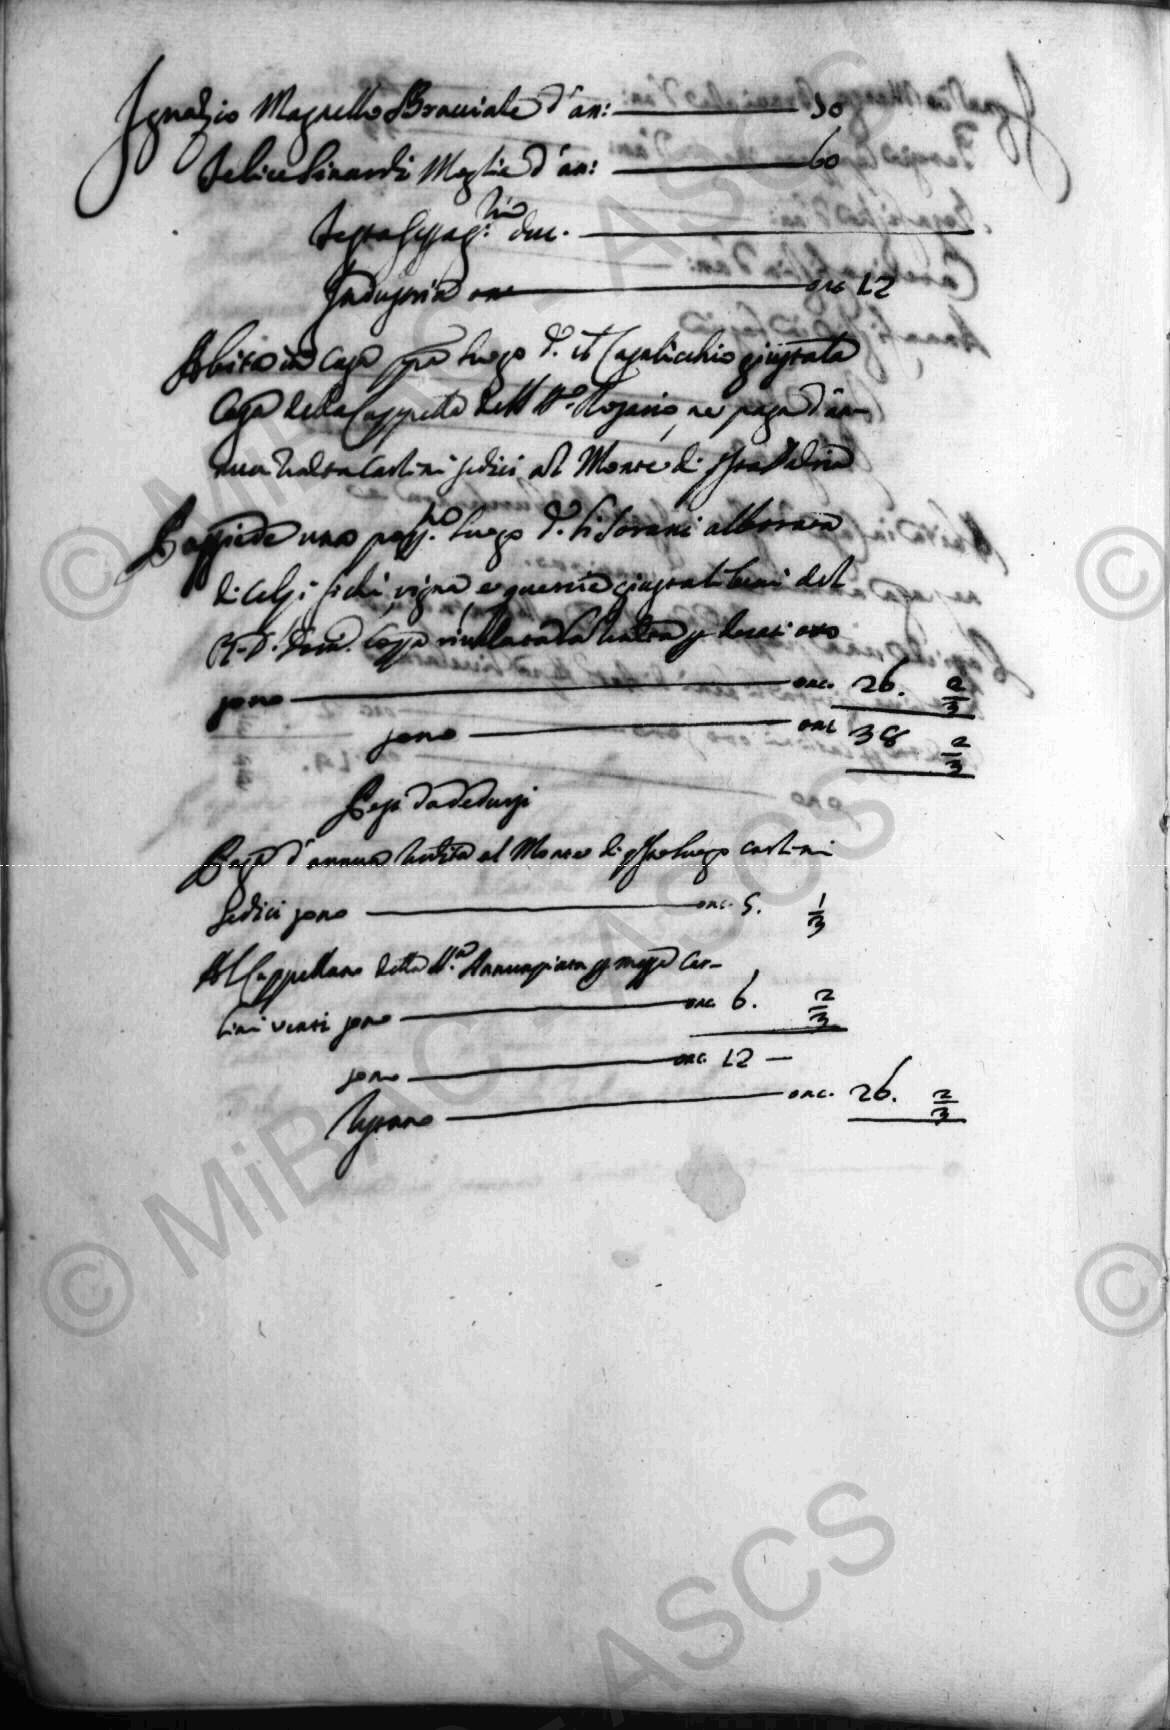 Ignazio Magnello Bracciale d'an: 50
Felice Linardi Moglie d'an: 60
Testa Sessag:rio duc.
Industria onc 12
Abita in Casa ppa luogo d. il Casalicchio giustata
Casa della Cappella dell SSo. Rosario, ne paga d'an-
nua rendita Carlini sedici al Monte di
Possiede uno poss.no luogo d. li alborata
di Celsi fichi, vigna, e quercie giustati beni del
R. D. Dom. Coppa la rendita p docati otto
sono onc. 26. 2/3
sono onc 38 2/3
Pesi da dedursi
Paga d'annua rendita al Monte di luogo carlini
sedici sono onc. 5. 1/3
Al Cappellano della SS.a Annunziata p messe Car-
lini venti sono onc. 6. 2/3
sono onc. 12 —
Restano onc. 26. 2/3
© MiBAC - ASCS